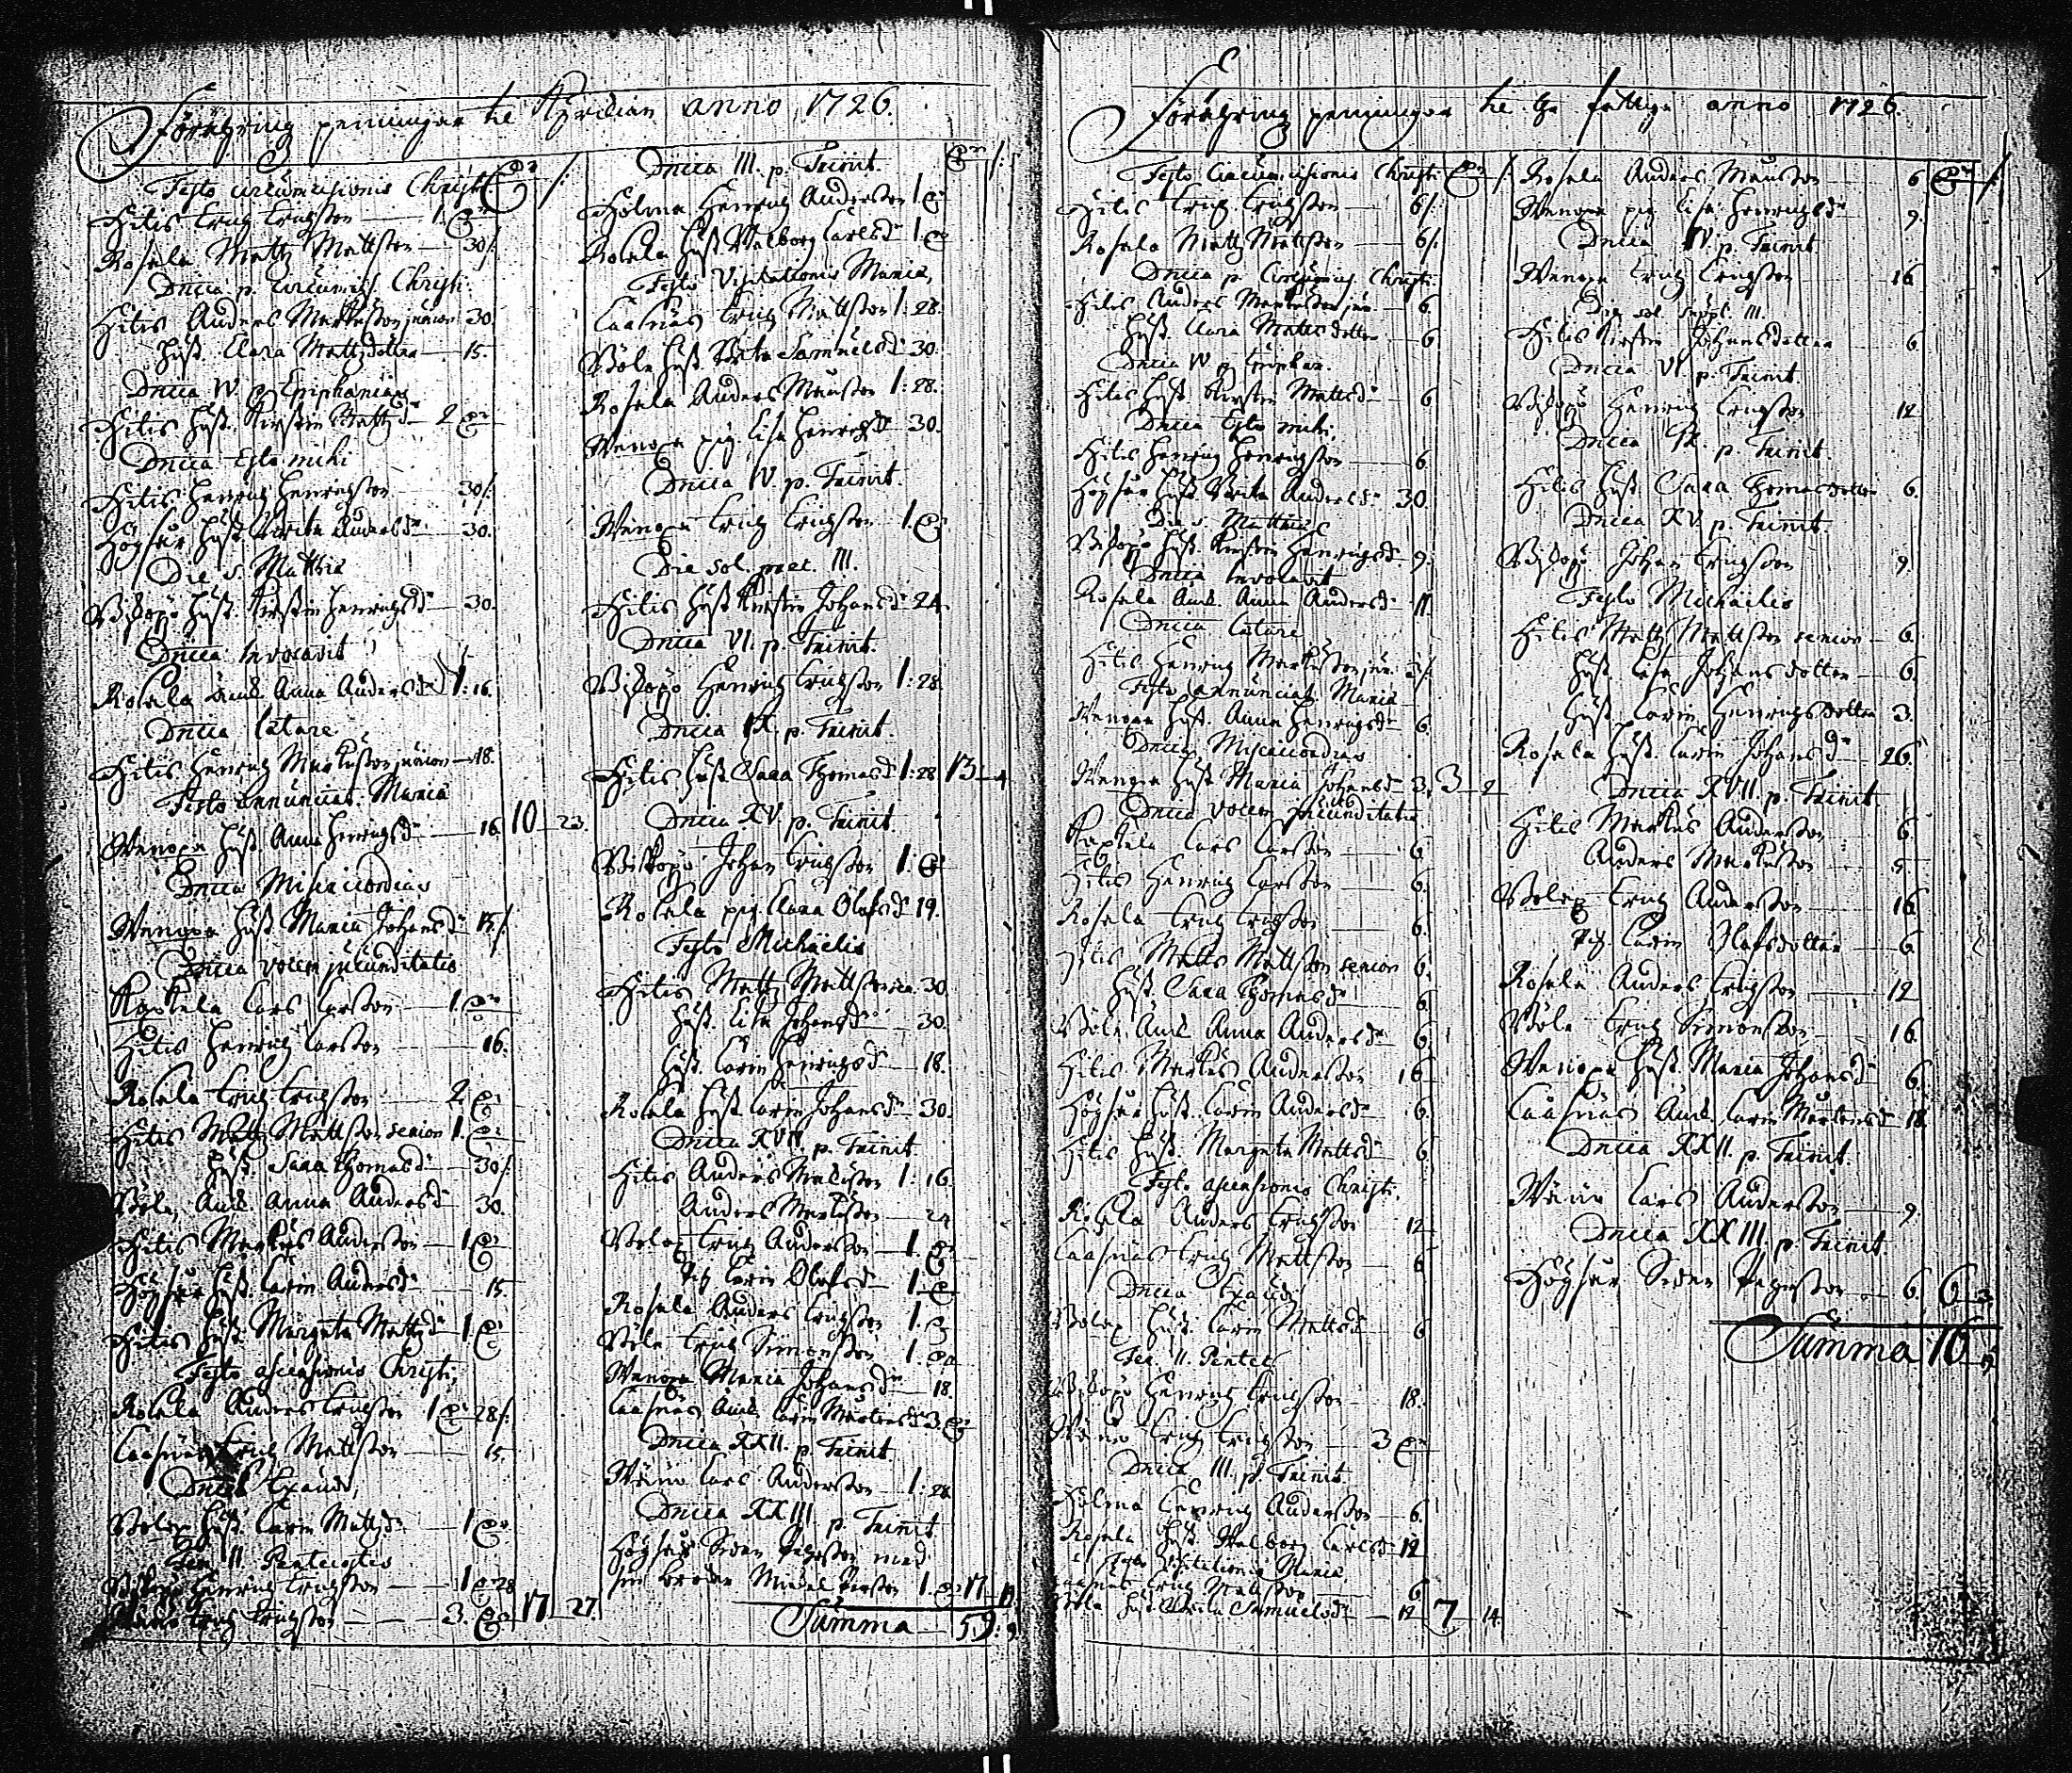 Förähring peningar til Kyrckian anno 1726.
Festo circumcisionis Christi
Hitis Erich Erichsson 1.
Rosala Mattz Mattsson 30
Dnica p. circumcis. Christi
Hitis Anders Markusson junior 30.
hust. Clara Mattzdotter 15.
Dnica IV p. Epiphanias
Hitis hust. Kirstin Mattzdr 2
Dnica Esto mihi
Hitis Henrich Henrichsson 30
Högsar hust. Brita Andersdr 30.
Die S. Matthiæ
Biskopö hust. Kirstin Henrichsdr 30.
Dnica Invocavit
Rosala Anna Andersdr 1:16.
Dnica Lætare
Hitis Henrich Markusson junior 18.
Festo annunciat. Mariæ
Wenoxa hust. Anna Henrichsdr 16. 10 23.
Dnica Misericordias
Wenoxa hust. Maria Johansdr 15
Dnica vocem jucunditatis
Lars Larsson 1.
Hitis Henrich Larsson 16.
Rosala Erich Erichsson 2
Hitis Mattz Mattsson senior 1.
hust. Sara Thomasdr 30
Böle Anna Andersdr 30.
Hitis Markus Andersson 1
Högsar hust. Carin Andersdr 15.
Hitis hust. Margeta Mattzdr 1.
Festo ascensionis Christi
Rosala Anders Erichsson 1 28
Erich Mattsson 15.
Dnica Exaudi
hust. Carin Mattzdr 1
Fer. II Pentecostes
Biskopö Henrich Erichsson 1 28
Erich Erichsson 3. 17 27.
Dnica III. p. Trinit.
Holma Henrich Andersson 1.
Rosala hust. Walborg Carlsdr 1.
Festo Visitationis Mariæ
Erich Mattsson 1:28.
Böle hust. Brita Samuelsdr 30.
Rosala Anders Mansson 1:28.
Wenoxa pig. Lisa Henrichsdr 30.
Dnica IV. p. Trinit.
Wenoxa Erich Erichsson 1.
Die sol. prec. III.
Hitis hust. Kirstin Johansdr 24.
Dnica VI. p. Trinit.
Biskopö Henrich Erichsson 1:28.
Dnica IX. p. Trinit.
Hitis hust. Sara Thomasdr 1:28 13 4
Dnica XV p. Trinit.
Biskopö Johan Erichsson 1.
Rosala pig. Clara Olofsdr 19.
Festo Michaelis
Hitis Mattz Mattsson 30.
hust. Lisa Johansdr 30.
hust. Carin Henrichsdr 18.
Rosala hust. Carin Johansdr 30.
Dnica XVII p. Trinit.
Hitis Anders Markusson 1:16.
Anders Markusson 24
Erich Andersson 1.
Carin Olofsdr 1.
Rosala Anders Erichsson 1.
Böle Erich Simonsson 1.
Wenoxa Maria Johansdr 18.
Carin Martensdr 3
Dnica XXII. p. Trinit.
Lars Andersson 1:28
Dnica XXIII. p. Trinit.
Högsar med
sin broder 1. 17
Summa 59:9.
Förähring peningar til the fattige anno 1726.
Festo Circumcisionis Christi
Hitis Erich Erichsson 6
Rosala Mattz Mattsson 6
Dnica p. Circumcis. Christi
Hitis Anders Markusson jun. 6.
hust. Clara Mattsdotter 6
Dnica IV p. Epiphan.
Hitis hust. Kirstin Mattsdr 6
Dnica Esto mihi
Hitis Henrich Henrichsson 6.
Högsar hust. Brita Andersdr 30.
Die S. Matthiæ
Biskopö hust. Kirstin Henrichsdr 9.
Dnica Invocavit
Rosala Anna Andersdr 11.
Dnica Lætare
Hitis Henrich Markusson jun. 3
Festo annunciat. Mariæ
Wenoxa hust. Anna Henrichsdr 6.
Dnica Misericordias
Wenoxa hust. Maria Johansdr 3. 3 2
Dnica vocem jucunditatis
Lars Larsson 6
Hitis Henrich Larsson 6.
Rosala Erich Erichsson 6.
Hitis Matts Mattsson senior 6.
hust. Sara Thomasdr 6
Böle Anna Andersdr 6.
Hitis Markus Andersson 16
Högsar hust. Carin Andersdr 6.
Hitis hust. Margeta Mattsdr 6.
Festo ascensionis Christi.
Rosala Anders Erichsson 12
Erich Mattsson 6
Dnica Exaudi
hust. Carin Mattsdr 6
Fer. II. Pentec.
Biskopö Henrich Erichsson 18.
Erich Erichsson 3
Dnica III. p. Trinit.
Holma Henrich Andersson 6.
Rosala hust. Walborg Carlsdr 12
Festo Visitationis Mariæ
Erich Mattsson 6
Böle hust. Brita Samuelsdr 12 7 14.
Rosala Anders Mansson 6
Wenoxa pig. Lisa Henrichsdr 9.
Dnica IV p. Trinit.
Wenoxa Erich Erichsson 16
Die sol. suppl. III.
Hitis Kirstin Johansdotter 6.
Dnica VI. p. Trinit.
Biskopö Henrich Erichsson 12.
Dnica IX. p. Trinit.
Hitis hust. Sara Thomasdotter 6.
Dnica XV p. Trinit.
Biskopö Johan Erichsson 9.
Festo Michaelis
Hitis Mattz Mattsson senior 6.
hust. Lisa Johansdotter 6.
hust. Carin Henrichsdotter 3.
Rosala hust. Carin Johansdr 26.
Dnica XVII. p. Trinit.
Hitis Markus Andersson 6
Anders Markusson 9.
Erich Andersson 16
Carin Olofsdotter 6
Rosala Anders Erichsson 12
Böle Erich Simonsson 16.
Wenoxa hust. Maria Johansdr 6.
Carin Martensdr 18.
Dnica XXII. p. Trinit.
Lars Andersson 9.
Dnica XXIII. p. Trinit.
Högsar 6. 6 3
Summa 16